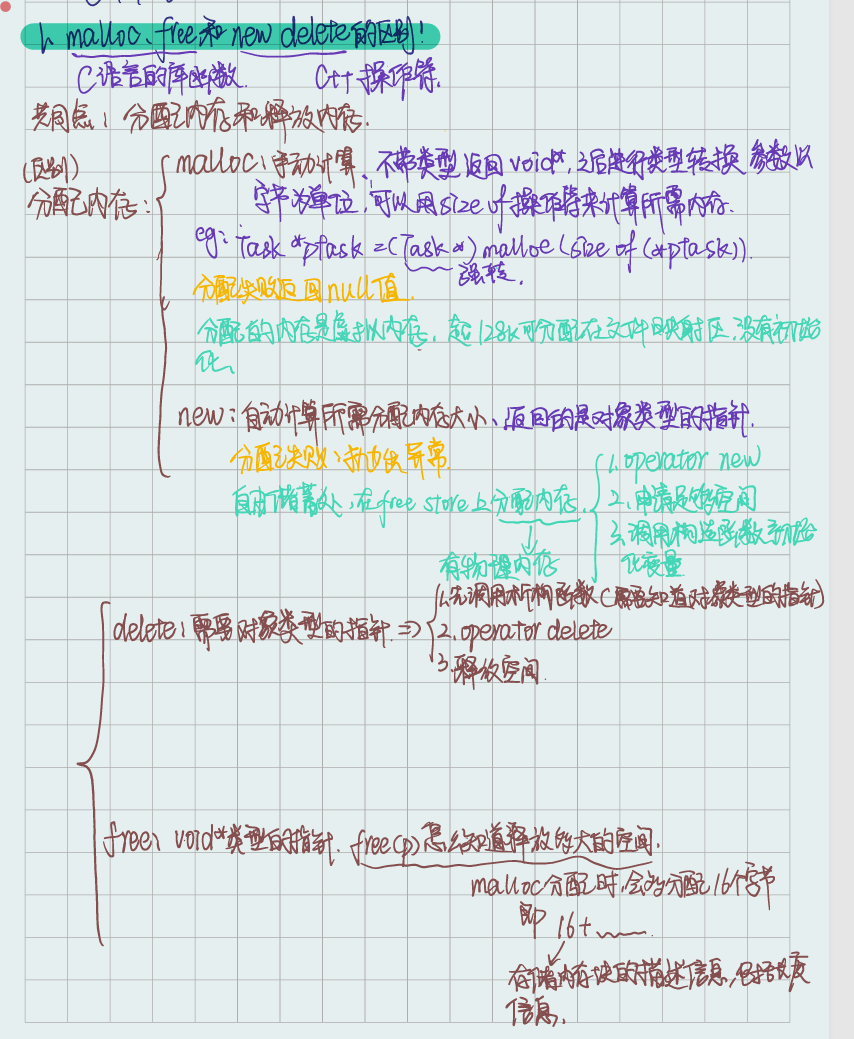 1、malloc、free和new delete的区别!
C语言的库函数. C++操作符.
共同点：分配内存和释放内存.
(区别)
分配内存：
malloc：手动计算、不带类型返回void*，之后进行类型转换 参数以
字节为单位，可以用size of操作符来计算所需内存.
eg：Task *ptask =(Task*) malloc(size of (*ptask)).
强转.
分配失败返回null值.
分配的内存是虚拟内存，超128k可分配在文件映射区.没有初始
化、
new：自动计算所需分配内存大小、返回的是对象类型的指针.
分配失败：抛出异常.
自由储蓄处，在free store上分配内存.
有物理内存
1.operator new
2.申请足够空间
3.调用构造函数初始
化变量
delete：需要对象类型的指针 =>
1.先调用析构函数(需要知道对象类型的指针)
2.operator delete
3.释放空间.
free、void*类型的指针. free(p)怎么知道释放多大的空间.
malloc分配时.会多分配16个字节
即 16+
存储内存块的描述信息,包括长度
信息.